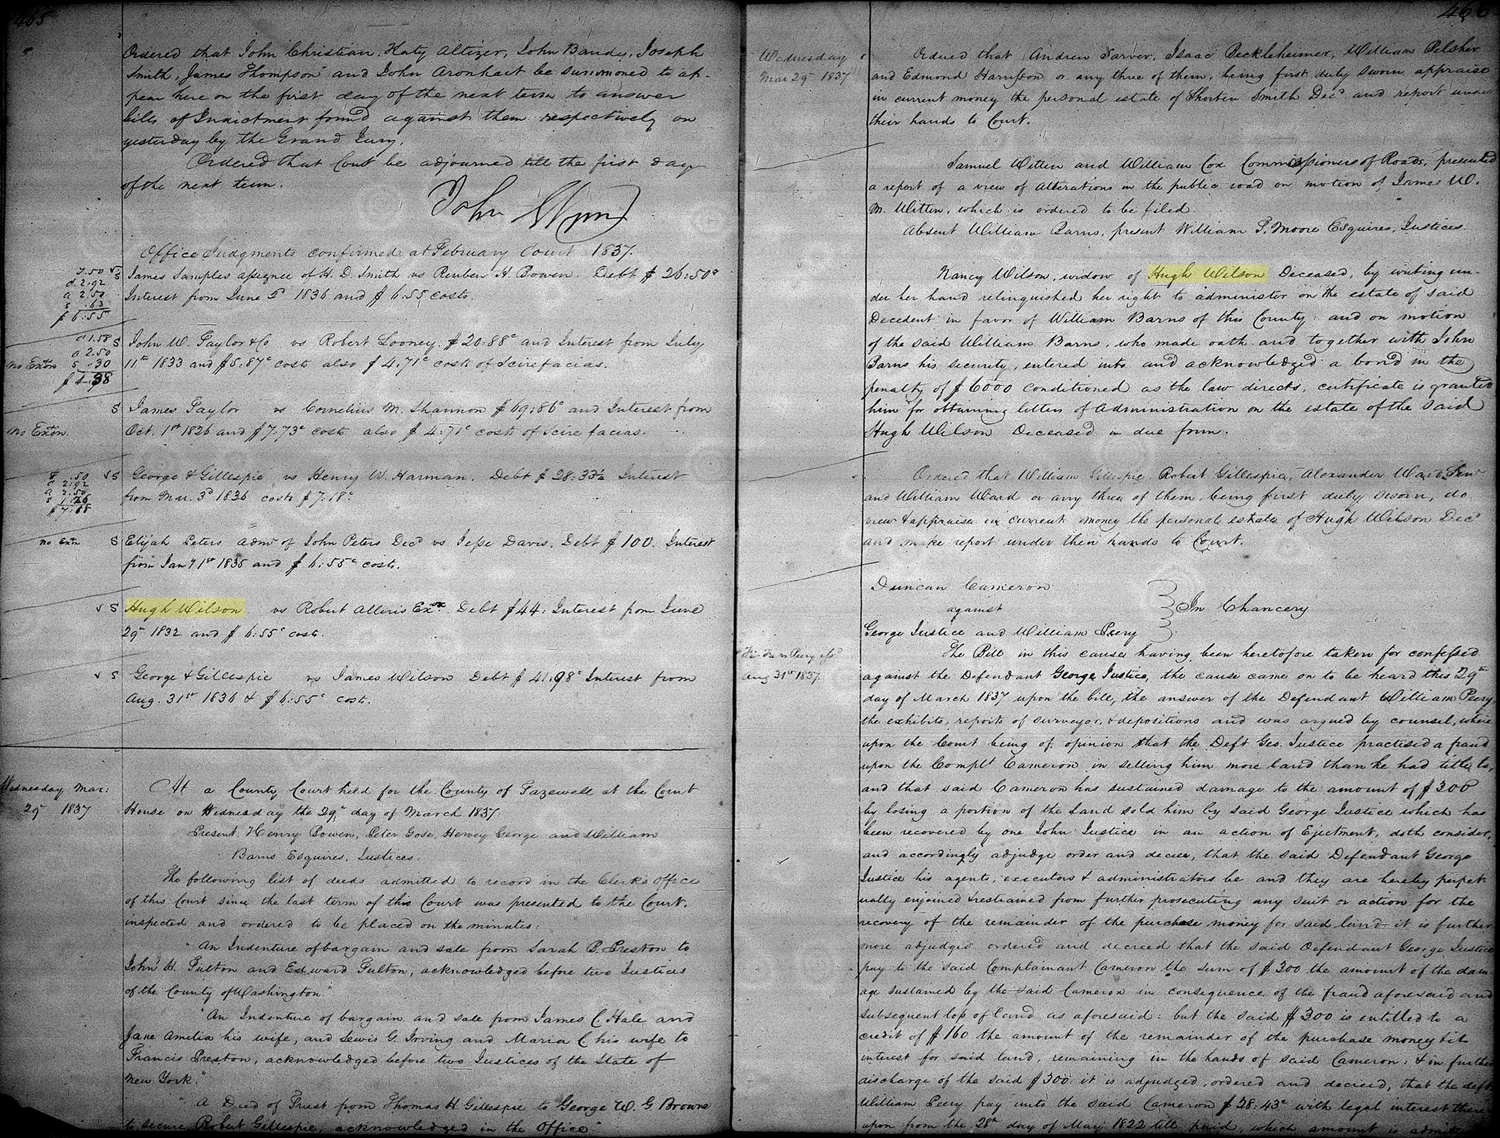 465
Ordered that John Christian, Katy Altizer, John Bandy, Joseph
Smith, James Thompson and John Aronhart be summoned to ap-
pear here on the first day of the next term to answer
bills of Indictment found against them respectively on
yesterday by the Grand Jury.
Ordered that Court be adjourned till the first day
of the next term.
John Wynn
Office Judgments confirmed at February Court 1837.
3.50
d 2.92
a 2.50
s .63
$6.55
James Samples assignee of H. D. Smith vs Reuben H Bowen. Debt $26.50c
Interest from June 5th 1836 and $6.55 costs.
c 1.58
a 2.50
s .30
$4.38
no Exton
S John W. Taylor & Co vs Robert Looney. $20.88c and Interest from July
11th 1833 and $5.87c costs also $4.71c costs of Scire facias.
S James Taylor vs Cornelius M. Shannon $69.86c and Interest from
no Exton.
Oct. 1st 1826 and $7.73c costs also $4.71c costs of Scire facias.
c 2.92
a 2.50
s 1.26
$7.18
√S George & Gillespie vs Henry W. Harman. Debt $28.33½ Interest
from Mar. 3d 1836 costs $7.18c
no Extn
S Elijah Peters Admr of John Peters Decd vs Jesse Davis. Debt $100. Interest
from Jany 1st 1835 and $6.55c costs.
√S Hugh Wilson vs Robert Alleris Exr Debt $44. Interest from June
29th 1832 and $6.55c cost.
√S George & Gillespie vs James Wilson Debt $41.98c Interest from
Aug. 31st 1836 & $6.55c cost.
Wednesday Mar:
29th 1837
At a County Court held for the County of Tazewell at the Court
House on Wednesday the 29th day of March 1837.
Present, Henry Bowen, Peter Gose, Hervey George and William
Barns Esquires, Justices.
The following list of deeds admitted to record in the Clerk's Office
of this Court since the last term of this Court was presented to the Court,
inspected and ordered to be placed on the minutes:
"An Indenture of bargain and sale from Sarah B. Preston to
John H. Fulton and Fulton, acknowledged before two Justices
of the County of Washington."
"An Indenture of bargain and sale from James C. Hale and
Jane Amelia his wife, and Lewis G. Irving and Maria C. his wife to
Francis Preston, acknowledged before two Justices of the State of
New York."
"A Deed of Trust from Thomas H. Gillespie to George W. G. Browne
to secure Robert Gillespie, acknowledged in the Office."
466
Wednesday
Mar 29th 1837
Ordered that Andrew Sarver, Isaac Beckleheimer, William Belsher
and Edmond Harrisson or any three of them, being first duly sworn appraise
in current money the personal estate of Smith Decd and report under
their hands to Court.
Samuel Witten and William Cox Commissioners of Roads, presented
a report of a view of alterations in the public road on motion of James W.
M. Witten, which is ordered to be filed.
Absent William Barns, present William P. Moore Esquires, Justices
Nancy Wilson, widow of Hugh Wilson Deceased, by writing un-
der her hand relinquished her right to administer on the estate of said
Decedent in favor of William Barns of this County and on motion
of the said William Barns, who made oath and together with John
Barns his security, entered into and acknowledged a bond in the
penalty of $6000 conditioned as the law directs, certificate is granted
him for obtaining letters of Administration on the estate of the said
Hugh Wilson Deceased in due form.
Ordered that William Gillespie, Robert Gillespie, Alexander Ward Senr
and William Ward or any three of them, being first duly sworn, do
view & appraise in current money the personal estate of Hugh Wilson Decd
and make report under their hands to Court.
Duncan Cameron
against
In Chancery
George Justice and William Peery
Aug 31st 1837.
The Bill in this cause having been heretofore taken for confessed
against the Defendant George Justice, the cause came on to be heard this 29th
day of March 1837 upon the bill, the answer of the Defendant William Peery
the exhibits, reports of surveyor, & depositions and was argued by counsel, where
upon the Court being of opinion that the Deft Geo. Justice practised a fraud
upon the Complt Cameron in selling him more land than he had title to,
and that said Cameron has sustained damage to the amount of $300
by losing a portion of the land sold him by said George Justice which has
been recovered by one John Justice in an action of Ejectment, doth consider,
and accordingly adjudge order and decree, that the said Defendant George
Justice his agents, executors & administrators be and they are hereby perpet
ually enjoined & restrained from further prosecuting any suit or action for the
recovery of the remainder of the purchase money for said land it is further
more adjudged ordered and decreed that the said Defendant George Justice
pay to the said Complainant Cameron the sum of $300 the amount of the dam-
age sustained by the said Cameron in consequence of the fraud aforesaid and
subsequent loss of land as aforesaid: but the said $300 is entitled to a
credit of $160 the amount of the remainder of the purchase money &
interest for said land, remaining in the hands of said Cameron: & in further
discharge of the said $300 it is adjudged, ordered and decreed, that the deft
William Peery pay unto the said Cameron $28.43c with legal interest there
upon from the 28th day of May 1822 till paid, which amount is